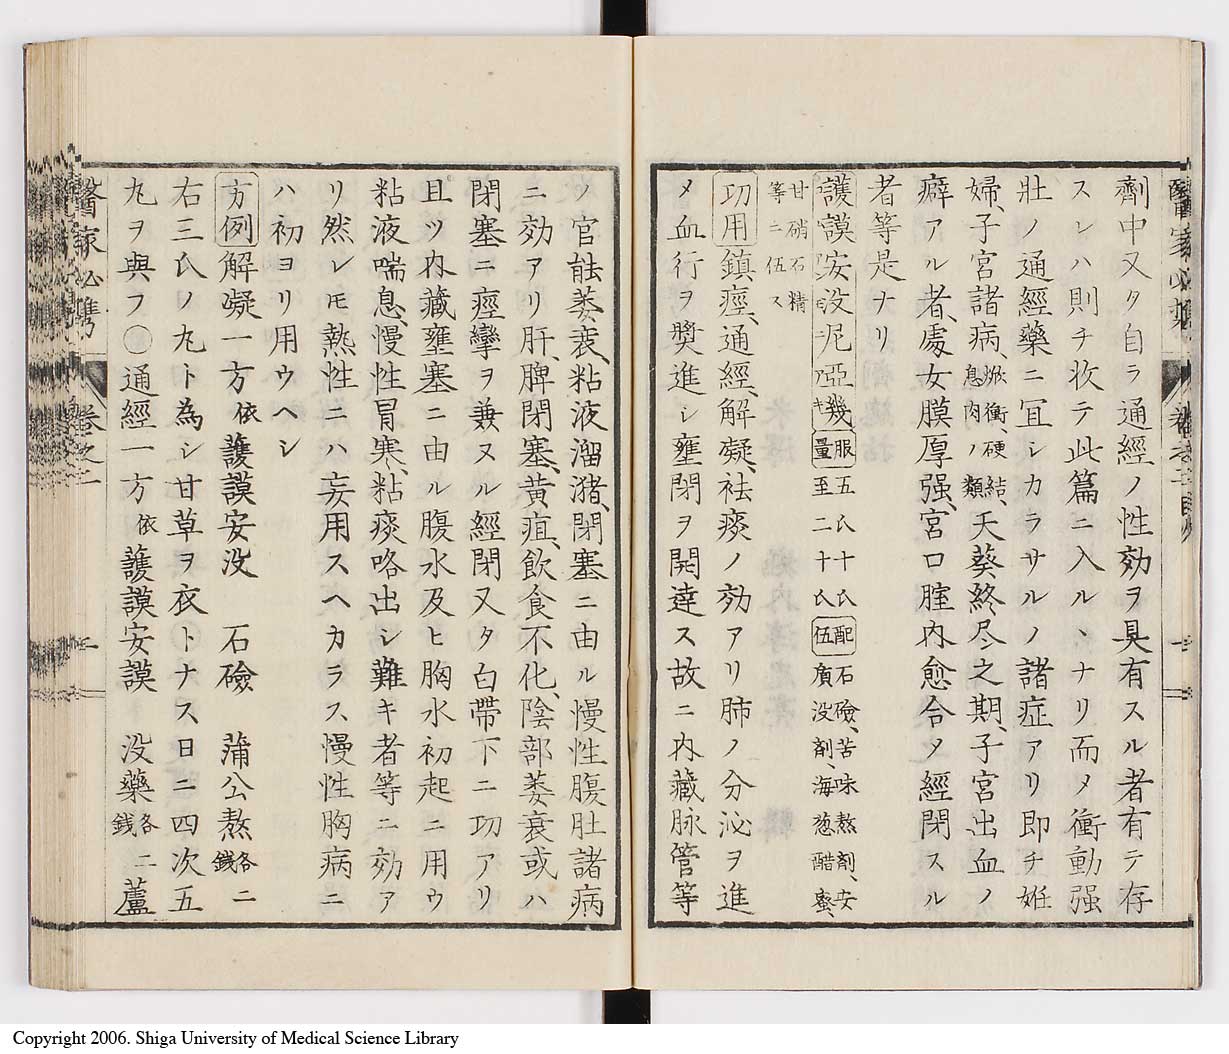 劑中又タ自ラ通經ノ性効ヲ具有スル者有テ存
スレハ則チ收テ此篇ニ入ルヽナリ而メ衝動强
壯ノ通經藥ニ冝シカラサルノ諸症アリ即チ妊
婦、子宮諸病、焮衝、硬結、息肉ノ類天葵終尽之期、子宮出血ノ
癖アル者、處女膜厚强、宮口腟内愈合メ經閉スル
者等是ナリ
護謨安没尼亞幾服量五氏十氏至二十氏配伍石鹸、苦味熬劑、安質没剤、海葱醋蜜、
甘硝石精等ニ伍ス
功用鎮痙、通經、解凝、祛痰ノ効アリ肺ノ分泌ヲ進
メ血行ヲ奬進シ壅閉ヲ開達ス故ニ内藏脉管等
ノ官能萎衰、粘液溜瀦、閉塞ニ由ル慢性腹肚諸病
ニ効アリ肝、脾閉塞、黄疸、飲食不化、陰部萎衰或ハ
閉塞ニ痙攣ヲ兼ヌル經閉又タ白帶下ニ功アリ
且ツ内藏壅塞ニ由ル腹水及ヒ胸水初起ニ用ウ
粘液喘息、慢性冒寒、粘痰咯出シ難キ者等ニ効ア
リ然レモ熱性ニハ妄用スヘカラス慢性胸病ニ
ハ初ヨリ用ウヘシ
方例解凝一方依護謨安没 石鹸 蒲公熬各二錢
右三氏ノ丸ト為シ甘草ヲ衣トナス日ニ四次五
丸ヲ與フ○通經一方依護謨安謨 没藥各二錢 蘆
醫家必携 卷之二
Copyright 2006. Shiga University of Medical Science Library